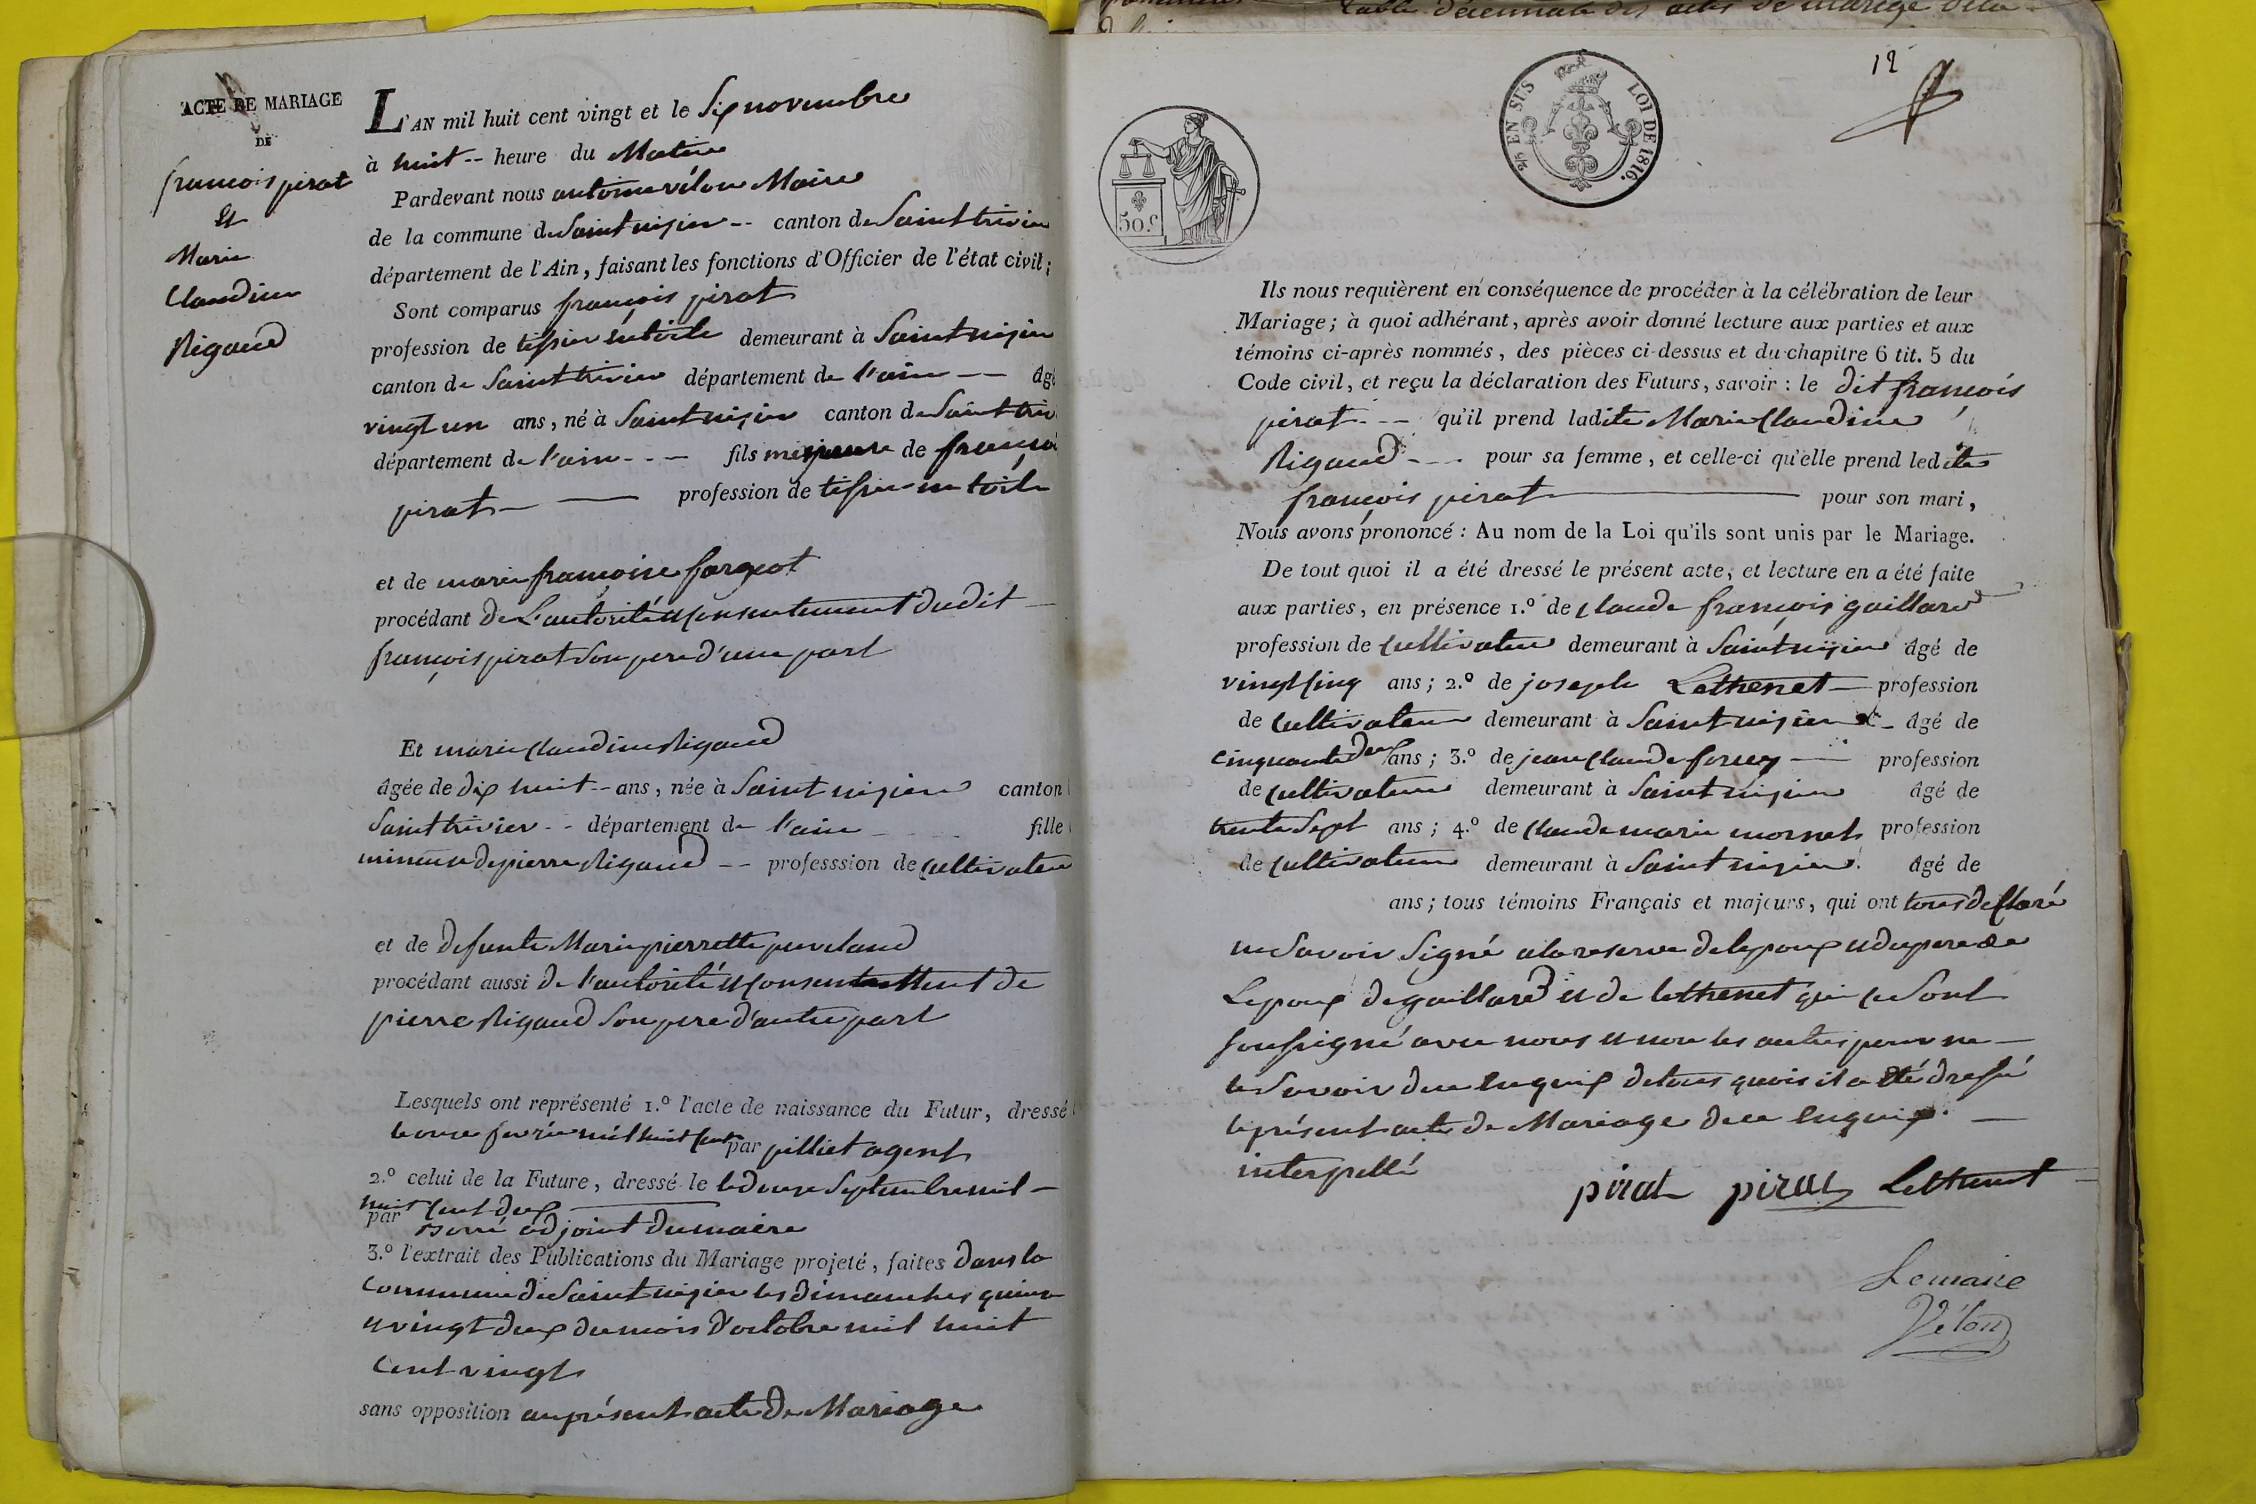 ACTE DE MARIAGE
DE
francois pirat
Et
Marie
Claudine
Rigaud
L'AN mil huit cent vingt et le Six novembre
à huit -- heure du Matin
Pardevant nous antoine vélon Maire
de la commune de Saint nizier -- canton de Saint trivier
département de l'Ain, faisant les fonctions d'Officier de l'état civil;
Sont comparus françois pirat
profession de tissier en toile demeurant à Saint nizier
canton de Saint trivier département de l'ain -- âgé
vingt un ans, né à Saint nizier canton de Saint triv
département de l'ain - - - fils mineur de françoi
pirat — profession de tissier en toile
et de marie françoise fargeot
procédant De L'autorité et Consentement dudit
françois pirat Son pere d'une part
Et marie Claudine Rigaud
âgée de dix huit -- ans, née à Saint nizier canton
Saint trivier -- département de l'ain - - - fille
mineure de pierre Rigaud -- professsion de Cultivateur
et de defunte Marie pierrette
procédant aussi de l'autorité et Consentement de
pierre Rigaud Son pere d'autre part
Lesquels ont représenté 1.º l'acte de naissance du Futur, dressé
le onze fevrie mil huit Cent par pilliet agent
2.º celui de la Future, dressé le le douze Septembre mil —
huit Cent deux
par adjoint du maire
3.º l'extrait des Publications du Mariage projeté, faites dans la
Commune de Saint nizier les dimanches quinze
et vingt deux du mois d'octobre mil huit
Cent vingt
sans opposition au présent acte de Mariage
table décennale des actes de mariage de la
12
EN SUS LOI DE 1816.
50.c
Ils nous requièrent en conséquence de procéder à la célébration de leur
Mariage; à quoi adhérant, après avoir donné lecture aux parties et aux
témoins ci-après nommés, des pièces ci-dessus et du chapitre 6 tit. 5 du
Code civil, et reçu la déclaration des Futurs, savoir : le dit françois
pirat - - - qu'il prend ladite Marie Claudine
Rigaud - - - pour sa femme, et celle-ci qu'elle prend ledite
françois pirat — pour son mari,
Nous avons prononcé : Au nom de la Loi qu'ils sont unis par le Mariage.
De tout quoi il a été dressé le présent acte, et lecture en a été faite
aux parties, en présence 1.º de Claude françois gaillard
profession de Cultivateur demeurant à Saint nizier âgé de
vingt Cinq ans; 2.º de joseph Lethenet — profession
de Cultivateur demeurant à Saint nizier - âgé de
Cinquante deux ans; 3.º de jean Claude — profession
de Cultivateur demeurant à Saint nizier âgé de
trente Sept ans; 4.º de Claude marie mornet profession
de Cultivateur demeurant à Saint nizier. âgé de
ans; tous témoins Français et majeurs, qui ont tous declaré
ne Savoir Signé a la reserve de lepoux et du pere de
Lepoux de gaillard et de lethenet qui ce Sont
Soussigné avec nous et non les autres pour ne —
le Savoir de ce enquis de tous quois il a été dressé
le présent acte de Mariage de ce enquis —
interpellé
pirat pirat Lethenet
Lemaire
Vélon